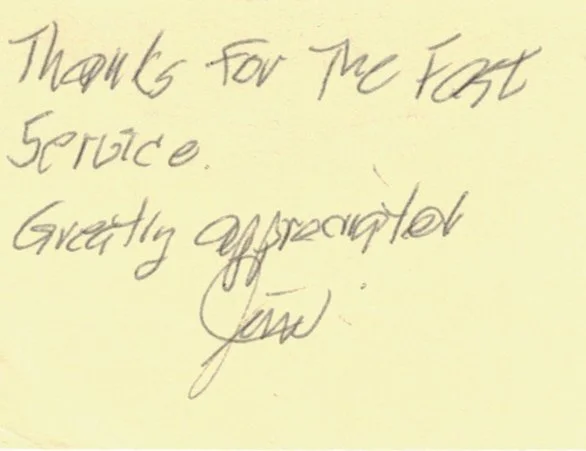 Thanks For The Fast
Service.
Greatly appreciated
Jim